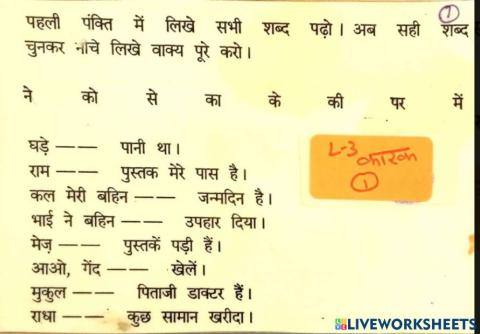 1
पहली पंक्ति में लिखे सभी शब्द पढ़ो। अब सही शब्द
चुनकर नीचे लिखे वाक्य पूरे करो।
ने को से का के की पर में
घड़े —— पानी था।
राम —— पुस्तक मेरे पास है।
कल मेरी बहिन —— जन्मदिन है।
भाई ने बहिन —— उपहार दिया।
मेज़ —— पुस्तकें पड़ी हैं।
आओ, गेंद —— खेलें।
मुकुल —— पिताजी डाक्टर हैं।
राधा —— कुछ सामान खरीदा।
L-3
कारक
1
LIVEWORKSHEETS